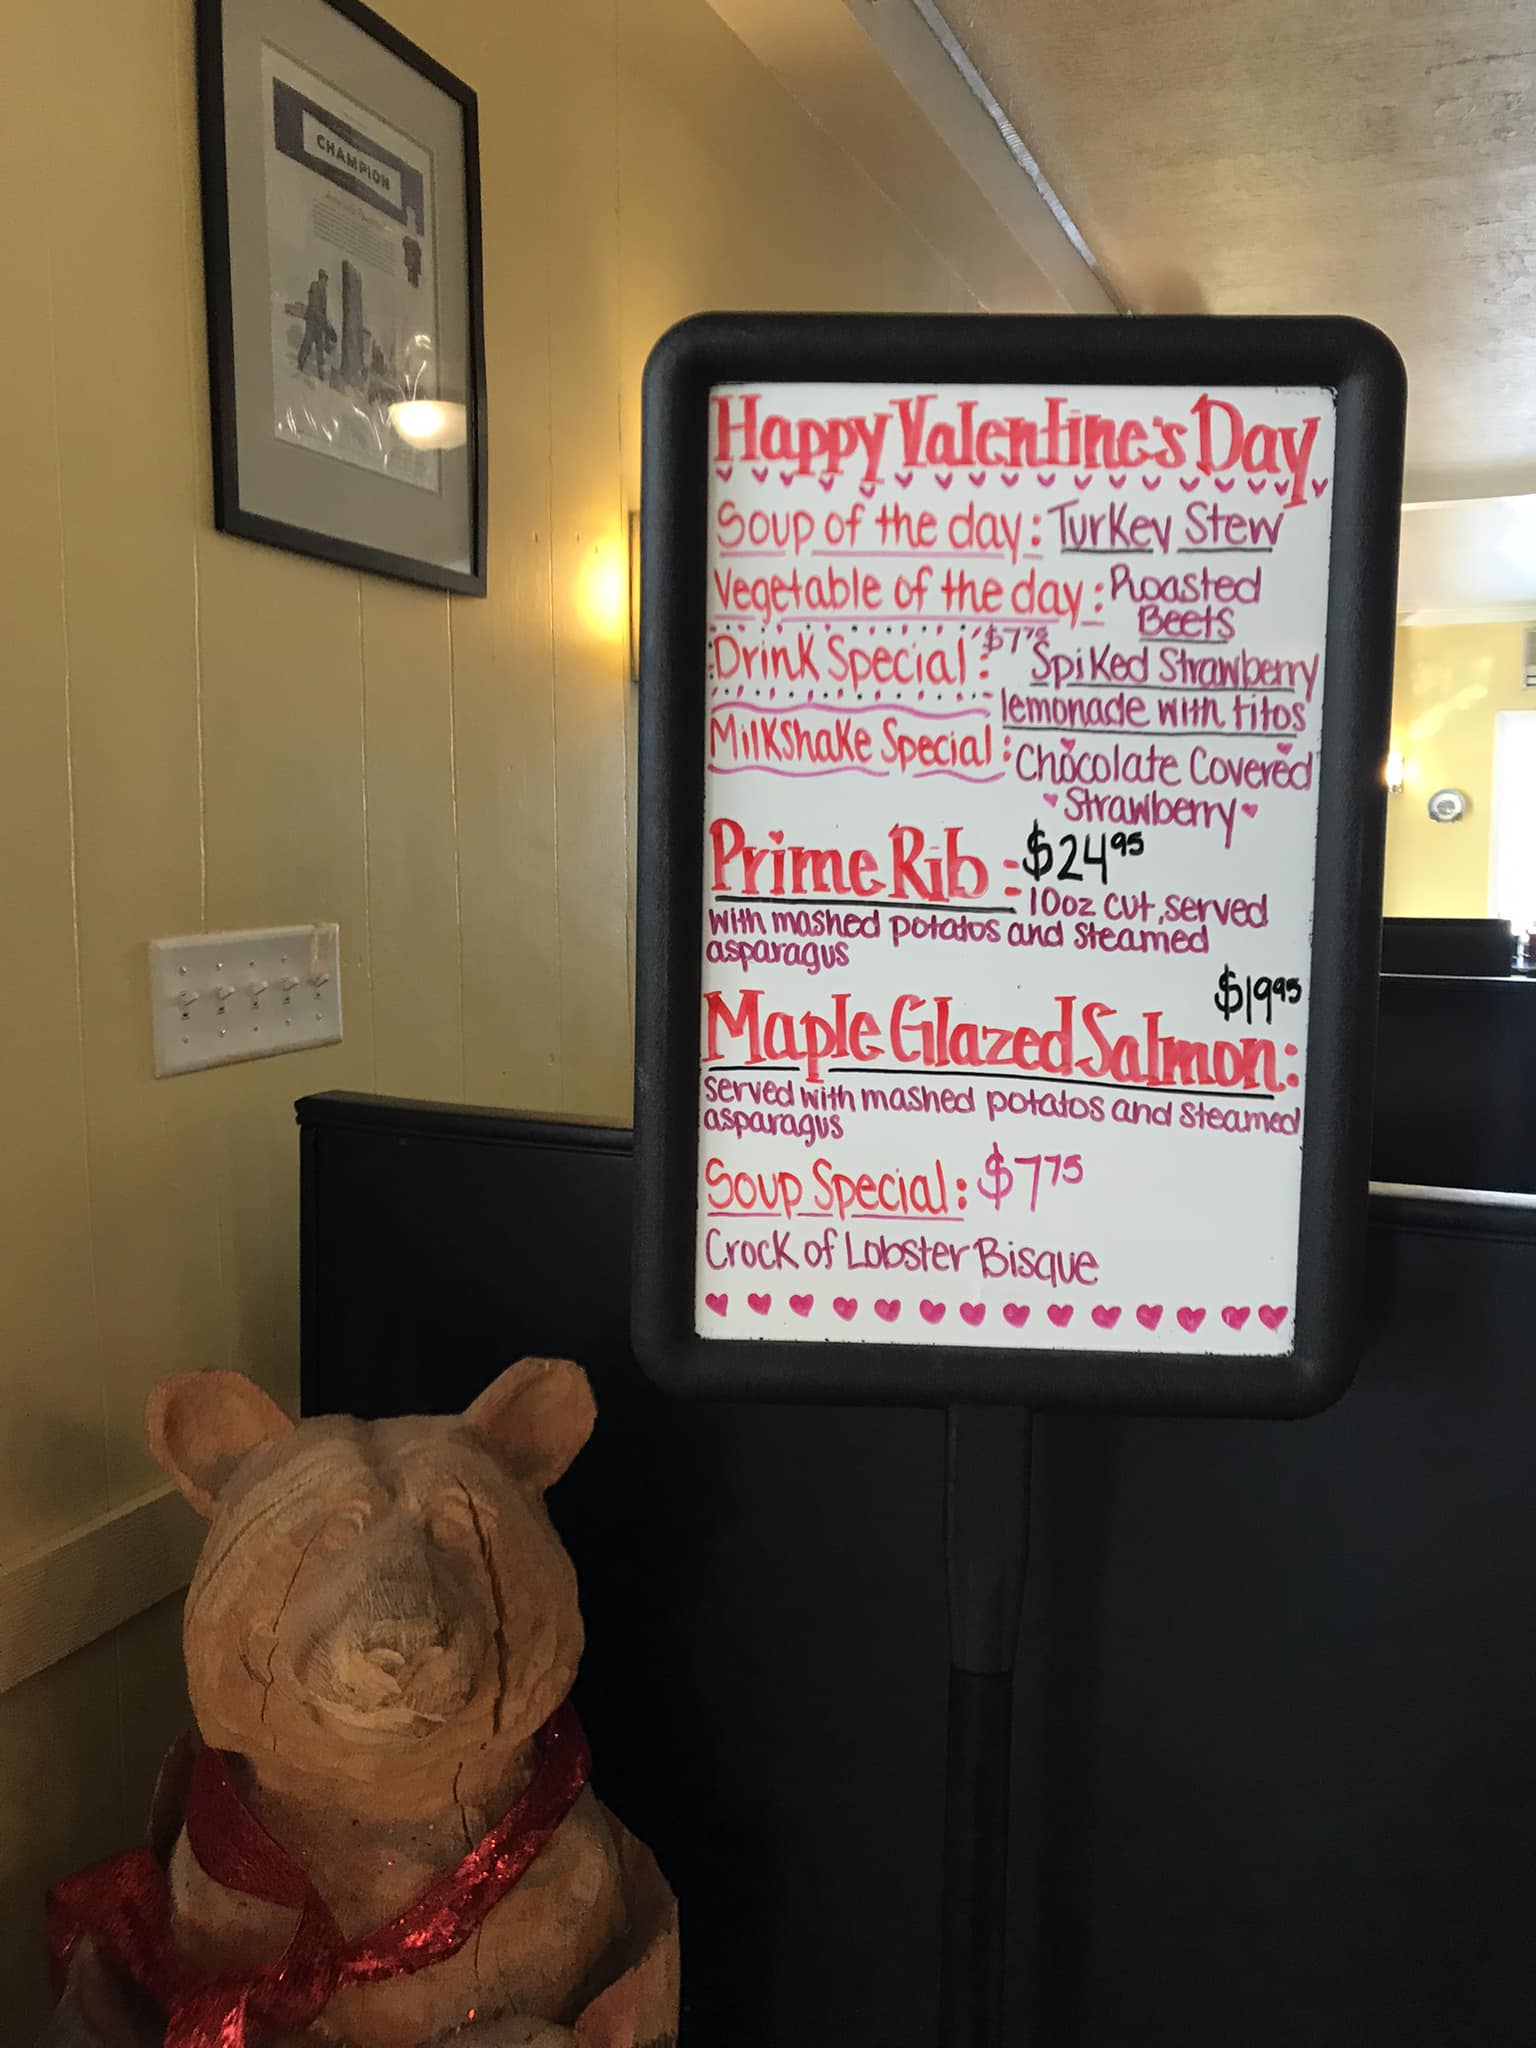 CHAMPION
Happy Valentine's Day
Soup of the day: Turkey Stew
Vegetable of the day: Roasted
Beets
Drink Special: $7.75 Spiked Strawberry
lemonade with titos
Milkshake Special: Chocolate Covered
Strawberry
Prime Rib: $24.95
10oz cut, served
with mashed potatos and steamed
asparagus
$19.95
Maple Glazed Salmon:
served with mashed potatos and steamed
asparagus
Soup Special: $7.75
Crock of Lobster Bisque